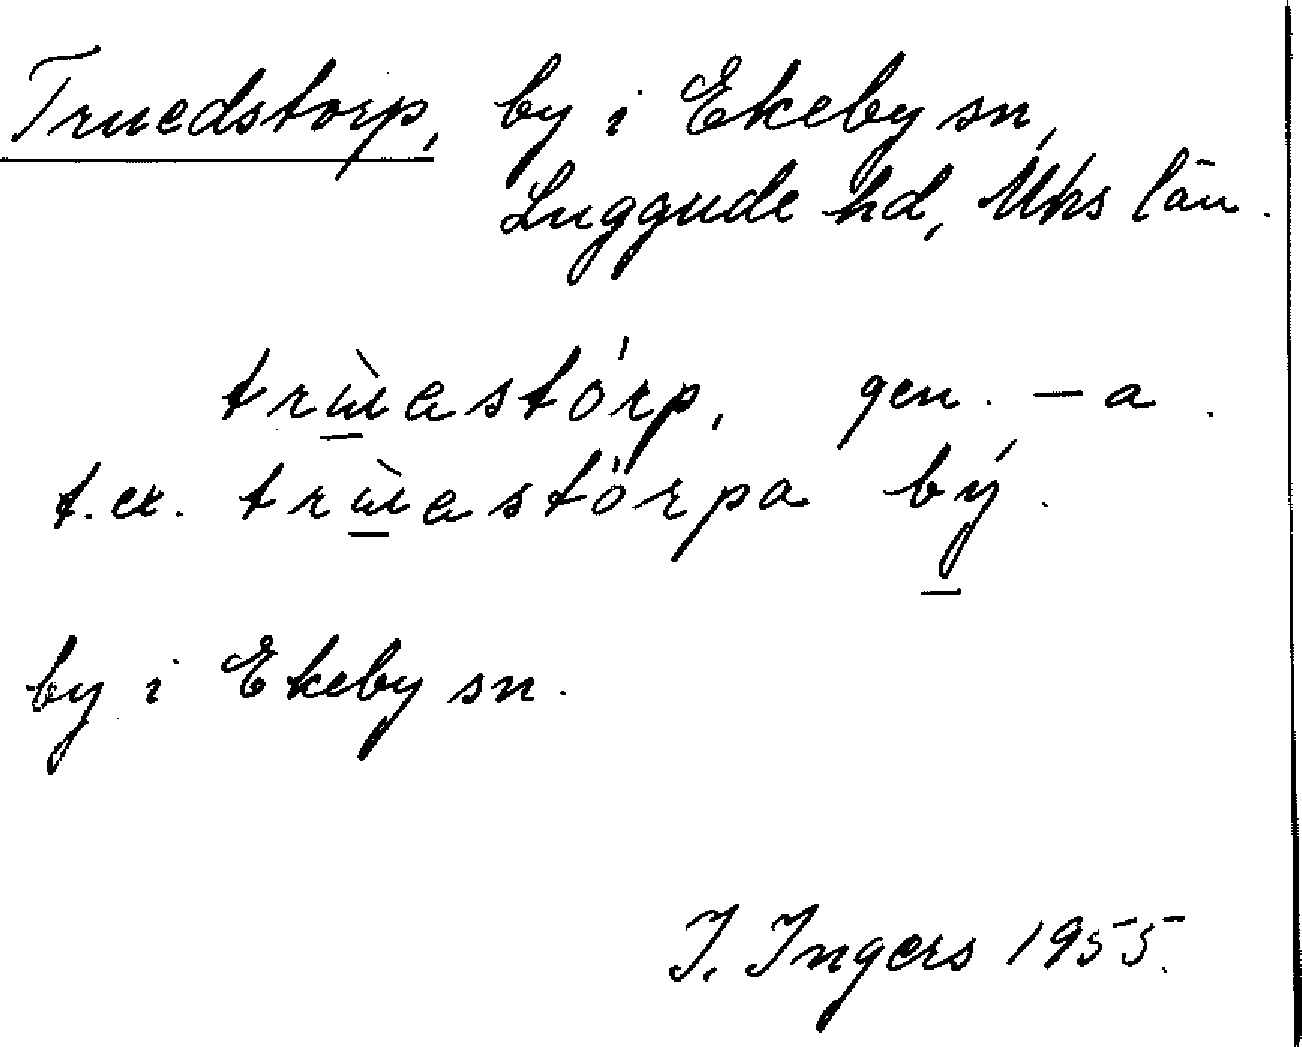 Truedstorp, by i Ekeby sn,
Luggude hd, Mhs län.
trɯ̀astórp, gen. -a.
t.ex. trɯ̀astórpa bý.
by i Ekeby sn.
I. Ingers 1955.